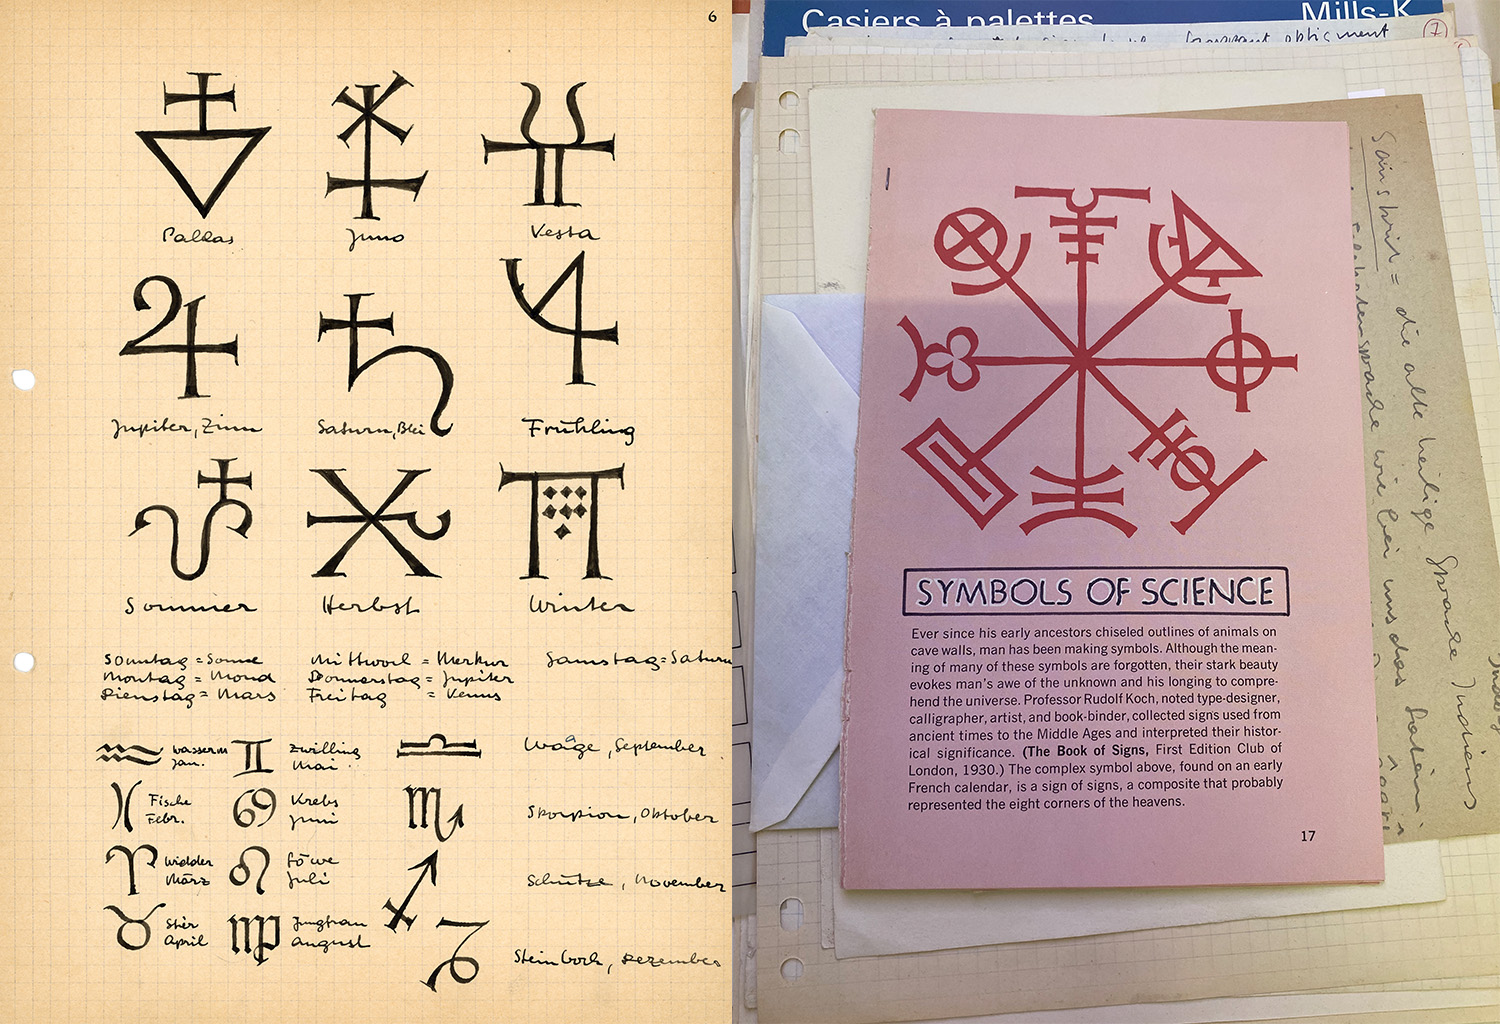 6
Pallas
Juno
Vesta
Jupiter, Zinn
Saturn, Blei
Frühling
Sommer
Herbst
Winter
Sonntag = Sonne
Montag = Mond
Dienstag = Mars
Mittwoch = Merkur
Donnerstag = Jupiter
Freitag = Venus
Samstag = Saturn
Wasserm
Jan.
Zwilling
Mai
Waage, September
Fische
Febr.
Krebs
Juni
Skorpion, Oktober
Widder
März
Löwe
Juli
Schütze, November
Stier
April
Jungfrau
August
Steinbock, Dezember
Casiers à palettes
Mills-K
7
Sainskrit = die alte heilige Sprache Indiens
wie bei uns das Latein
SYMBOLS OF SCIENCE
Ever since his early ancestors chiseled outlines of animals on
cave walls, man has been making symbols. Although the mean-
ing of many of these symbols are forgotten, their stark beauty
evokes man's awe of the unknown and his longing to compre-
hend the universe. Professor Rudolf Koch, noted type-designer,
calligrapher, artist, and book-binder, collected signs used from
ancient times to the Middle Ages and interpreted their histor-
ical significance. (The Book of Signs, First Edition Club of
London, 1930.) The complex symbol above, found on an early
French calendar, is a sign of signs, a composite that probably
represented the eight corners of the heavens.
17